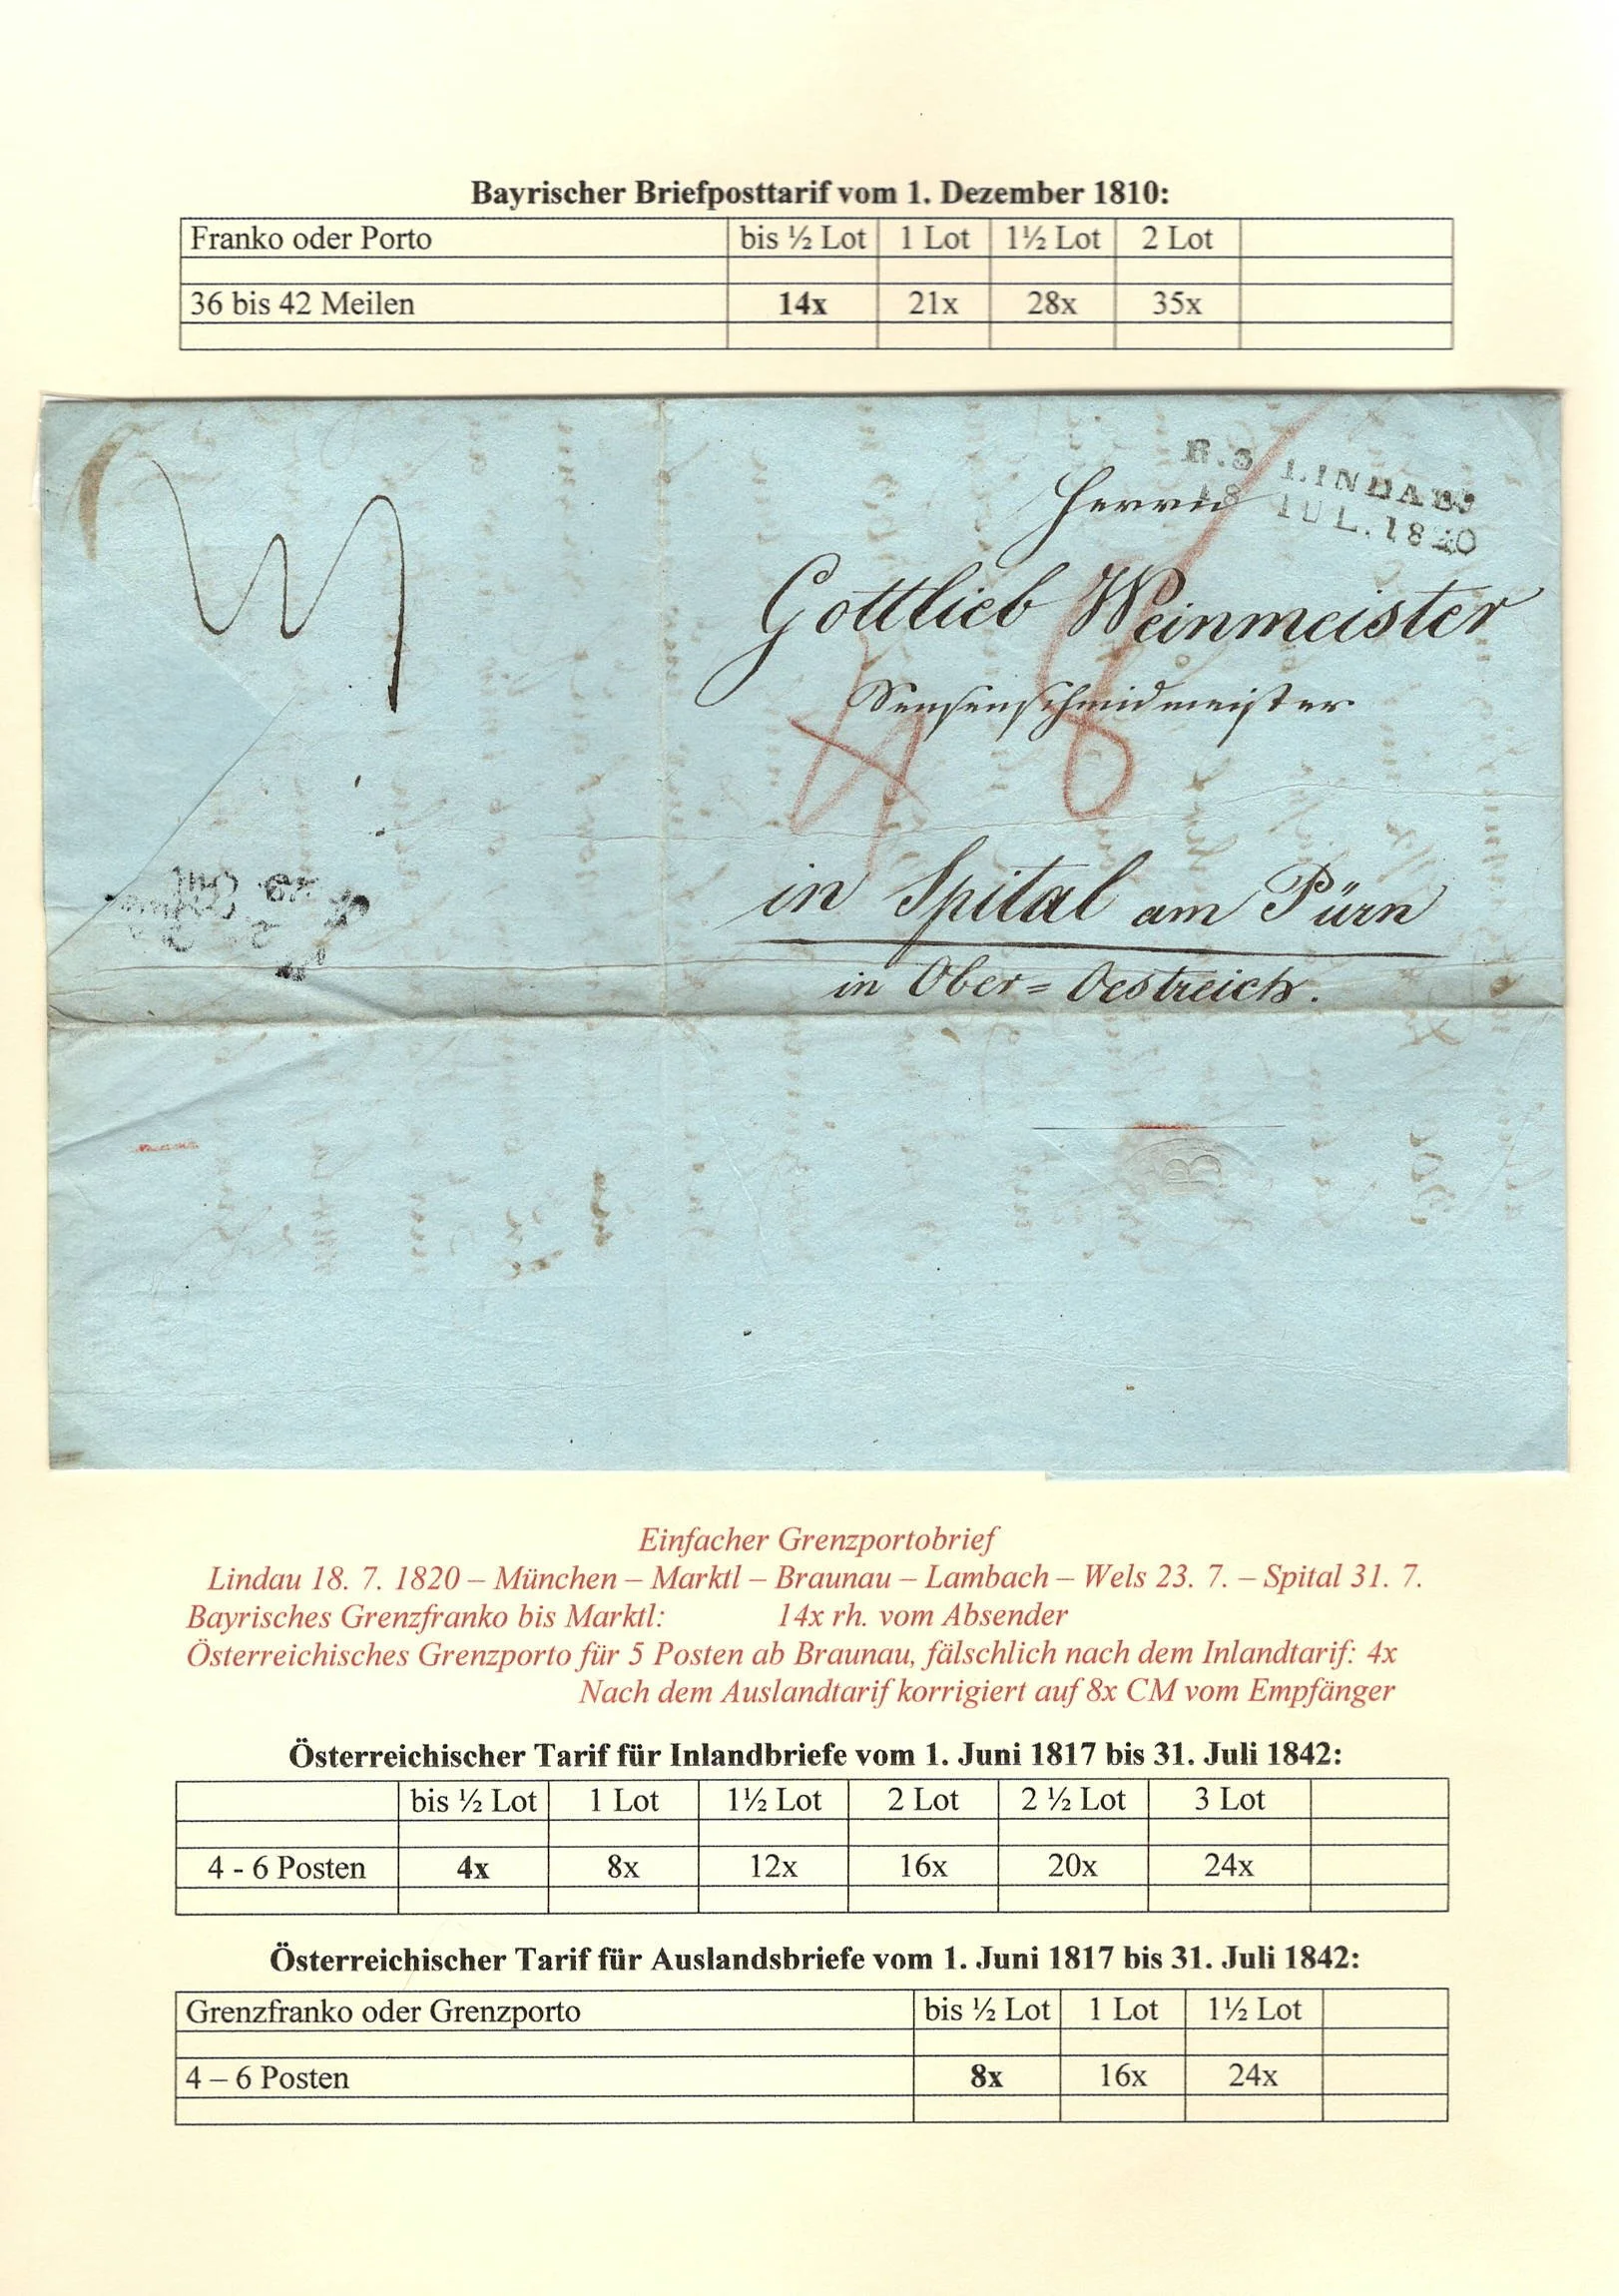 Bayrischer Briefposttarif vom 1. Dezember 1810:
Franko oder Porto bis ½ Lot 1 Lot 1½ Lot 2 Lot
36 bis 42 Meilen 14x 21x 28x 35x
R.3 LINDAU
18 IUL. 1820
Herrn
Gottlieb Weinmeister
Sensenschmidmeister
4 8
in Spital am Pürn
in Ober=Oestreich.
B
Einfacher Grenzportobrief
Lindau 18. 7. 1820 – München – Marktl – Braunau – Lambach – Wels 23. 7. – Spital 31. 7.
Bayrisches Grenzfranko bis Marktl: 14x rh. vom Absender
Österreichisches Grenzporto für 5 Posten ab Braunau, fälschlich nach dem Inlandtarif: 4x
Nach dem Auslandtarif korrigiert auf 8x CM vom Empfänger
Österreichischer Tarif für Inlandbriefe vom 1. Juni 1817 bis 31. Juli 1842:
bis ½ Lot 1 Lot 1½ Lot 2 Lot 2 ½ Lot 3 Lot
4 - 6 Posten 4x 8x 12x 16x 20x 24x
Österreichischer Tarif für Auslandsbriefe vom 1. Juni 1817 bis 31. Juli 1842:
Grenzfranko oder Grenzporto bis ½ Lot 1 Lot 1½ Lot
4 – 6 Posten 8x 16x 24x